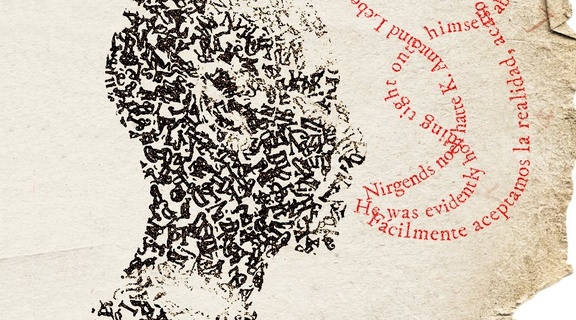 Nirgends noch hatte K. und Lebe
He was evidently holding tight on himse
Fácilmente aceptamos la realidad, acaso